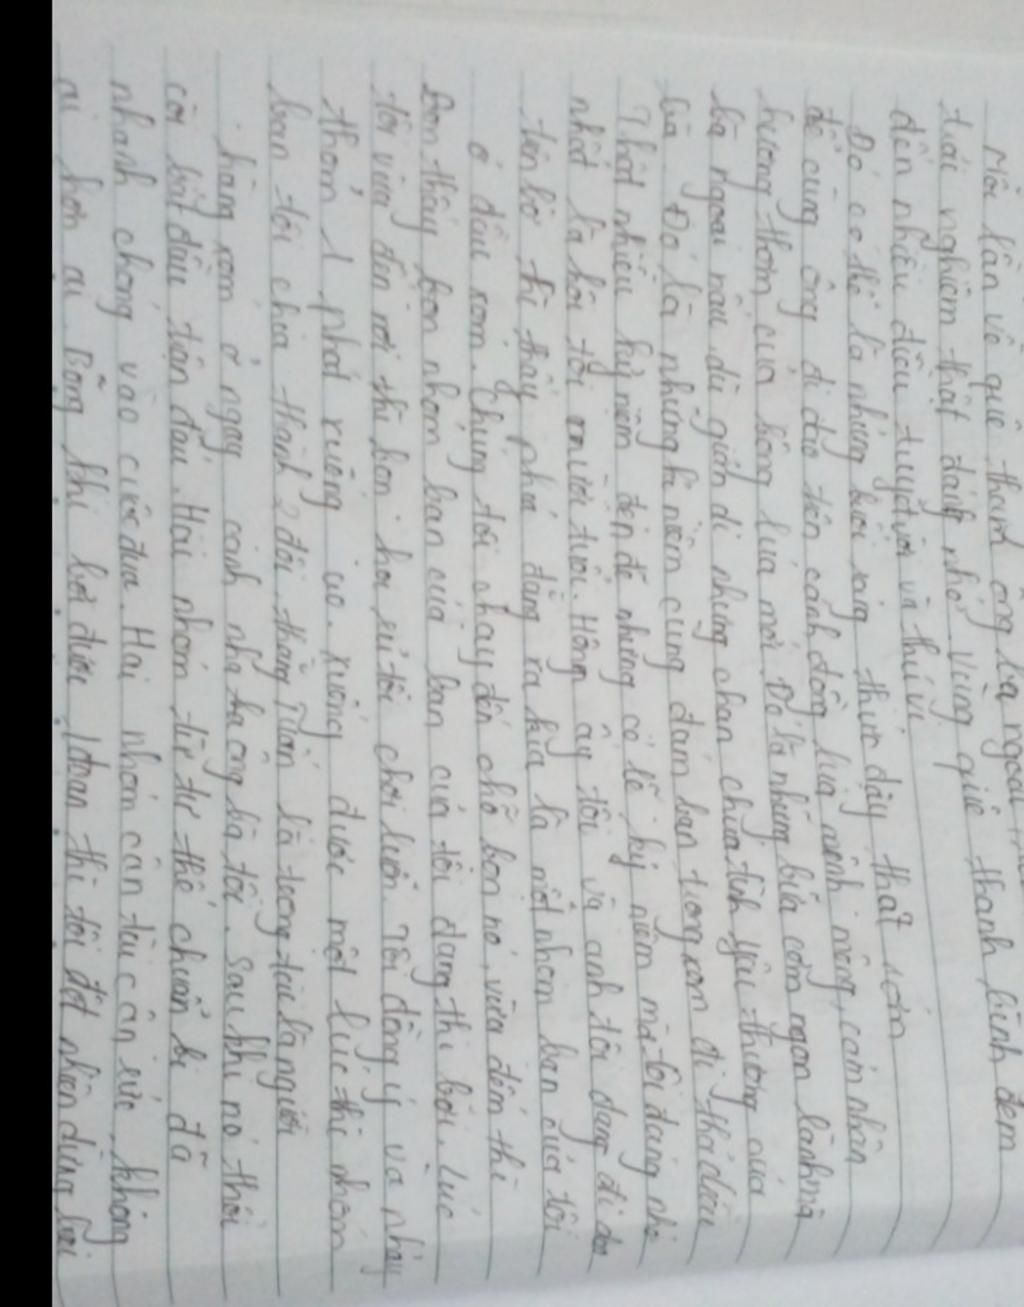 Mỗi lần về quê thăm ông bà ngoại
trải nghiệm thật đáng nhớ. Vùng quê thanh bình đem
đến nhiều điều tuyệt vời và thú vị
Đó có thể là những buổi sáng thức dậy thật sớm
để cùng ông đi dạo trên cánh đồng lúa mênh mông, cảm nhận
hương thơm của bông lúa mới. Đó là những bữa cơm ngon lành mà
bà ngoại nấu dù giản dị nhưng chan chứa tình yêu thương của
bà. Đó là những kỉ niệm cùng đám bạn trong xóm đi thả diều
Thật nhiều kỷ niệm đẹp đẽ nhưng có lẽ kỷ niệm mà tôi đáng nhớ
nhất là hồi tôi mười tuổi. Hôm ấy tôi và anh tôi đang đi dạo
trên bờ thì thấy phía đằng xa kia là một nhóm bạn của tôi
ở đầu xóm. Chúng tôi chạy đến chỗ bọn nó, vừa đến thì
bọn thấy bọn nhóm bạn của bạn của tôi đang thi bơi. Lúc
tôi vừa đến nơi thì bọn họ rủ tôi chơi luôn. Tôi đồng ý và nhảy
thỏm 1 phát xuống ao. xuống được một lúc thì nhóm
bạn tôi chia thành 2 đội. thằng Tuấn là trọng tài là người
hàng xóm ở ngay cạnh nhà ông bà tôi. Sau khi nó thổi
còi bắt đầu trận đấu. Hai nhóm từ tư thế chuẩn bị đã
nhanh chóng vào cuộc đua. Hai nhóm cân tài cân sức, không
ai hơn ai. Bỗng khi bơi được 1 đoạn thì tôi đột nhiên dừng lại